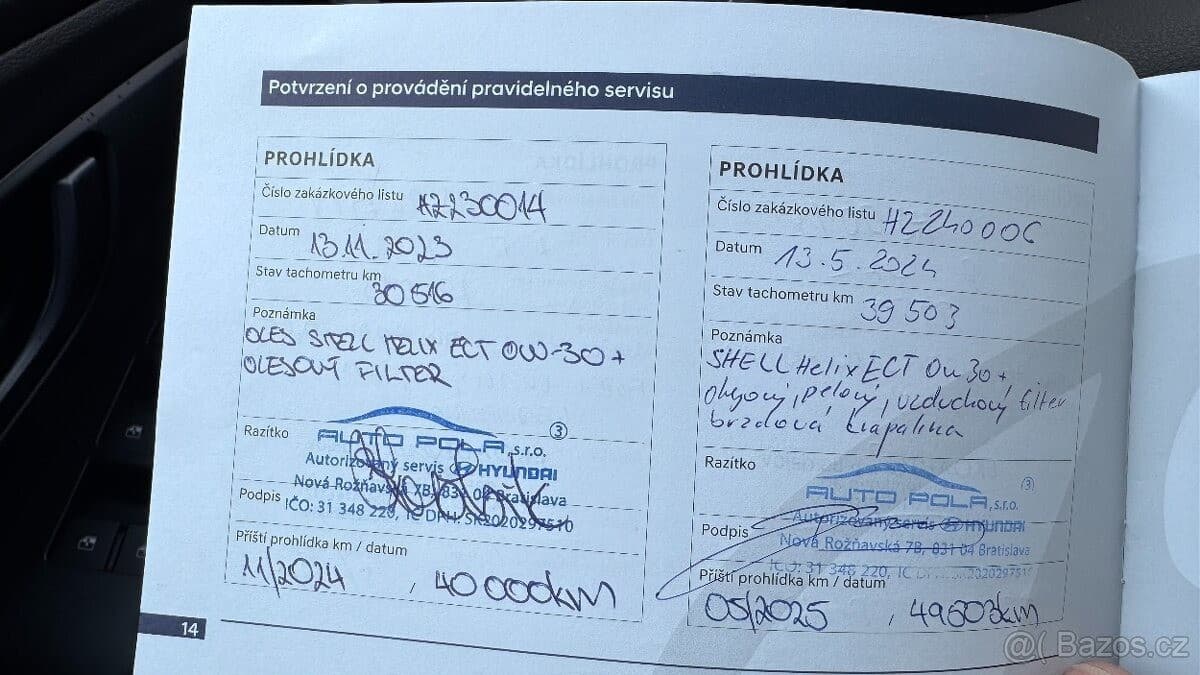 Potvrzení o provádění pravidelného servisu
PROHLÍDKA
Číslo zakázkového listu HZ230014
Datum 13.11.2023
Stav tachometru km 30 516
Poznámka
OLEJ SHELL HELIX ECT 0W-30 +
OLEJOVÝ FILTER
Razítko
AUTO POLA, s.r.o.
3
Autorizovaný servis HYUNDAI
Nová Rožňavská 7B, 831 04 Bratislava
Podpis
IČO: 31 348 220, IČ DPH: SK2020297510
Příští prohlídka km / datum
11/2024 , 40 000km
PROHLÍDKA
Číslo zakázkového listu HZ240006
Datum 13.5.2024
Stav tachometru km 39 503
Poznámka
SHELL Helix ECT 0w30 +
olejový, peľový, vzduchový filter
brzdová kvapalina
Razítko
(3)
AUTO POLA, s.r.o.
Autorizovaný servis HYUNDAI
Podpis
Nová Rožňavská 7B, 831 04 Bratislava
IČO: 31 348 220, IČ DPH: SK2020297510
Příští prohlídka km / datum
05/2025 , 49503km
14
Bazos.cz